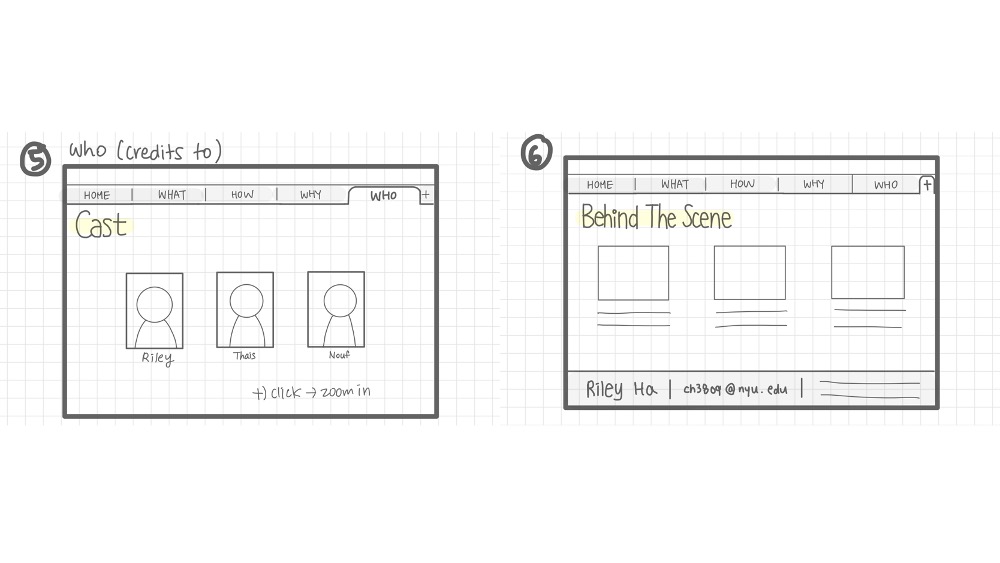 5
Who (credits to)
HOME | WHAT | HOW | WHY WHO +
Cast
Riley
Thais
Nouf
+) click → zoom in
6
HOME | WHAT | HOW | WHY | WHO +
Behind The Scene
Riley Ha | ch3809@nyu.edu |